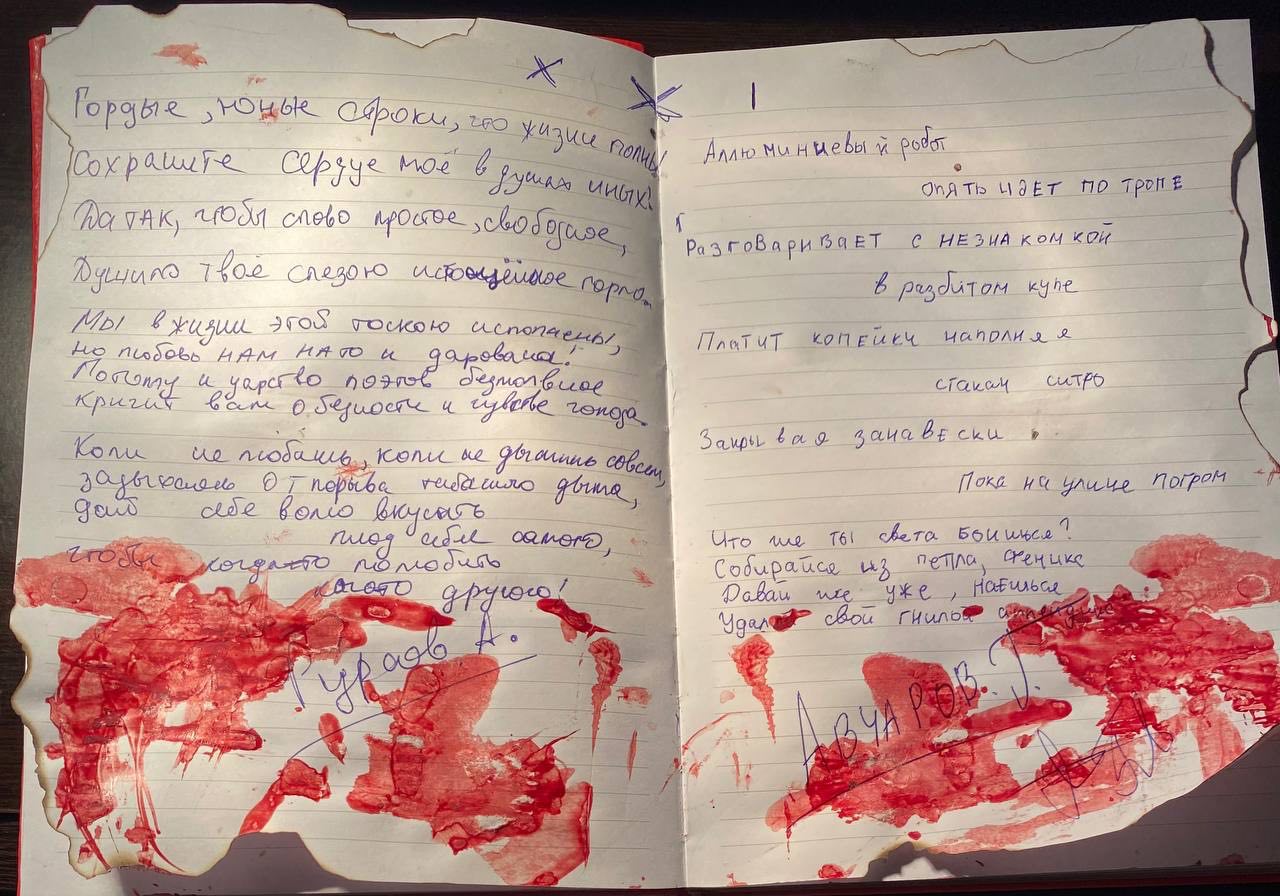 Гордые, юные строки, что жизни полны!
Сохраните сердце моё в душах иных!
Да так, чтобы слово простое, свободное,
Душило твоё слезою истощённое горло.
Мы в жизни этой тоскою испепелены,
но любовь нам на то и дарована!
Потому и царство поэтов безмолвное
кричит вам о бедности и чувстве голода.
Коли не любишь, коли не дышишь совсем,
задыхаясь от порыва дыма,
дай себе волю вкусить
плод себя самого,
чтобы когда-то полюбить
кого-то другого!
А.
1
Аллюминиевый робот
опять идет по тропе
Разговаривает с незнакомкой
в разбитом купе
Платит копейки наполняя
стакан ситро
Закрывая занавески
Пока на улице погром
Что же ты света боишься?
Собирайся из пепла, феникс
Давай же уже, наешься
Удали свой гнилой аппендикс
Авчаров. Г.